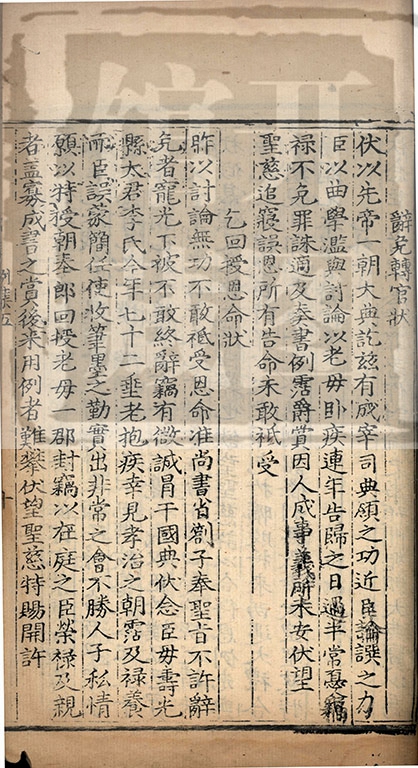 辭免轉官狀
伏以先帝一朝大典訖兹有成宰司典領之功近臣論譔之力
臣以曲學濫與討論以老母臥疾連年告歸之日過半常憂竊
禄不免罪誅適及奏書例霑爵賞因人成事義所未安伏望
聖慈追寢誤恩所有告命未敢祗受
乞回授恩命狀
昨以討論無功不敢祗受恩命准尚書省劄子奉聖旨不許辭
免者寵光下被不敢終辭竊有微誠冐干國典伏念臣母壽光
縣太君李氏今年七十二垂老抱疾幸見孝治之朝霑及禄養
而臣誤蒙簡任使收筆墨之勤實出非常之會不勝人子私情
願以特授朝奉郎回授老母一郡封竊以在庭之臣榮禄及親
者盖寡成書之賞後来用例者難攀伏望聖慈特賜開許